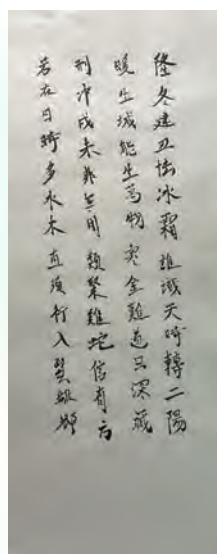 隆冬建丑怯冰霜誰識天時轉二陽
暖土誠能生萬物寒金難道只深藏
刑冲戌未非無用類聚雞蛇信有方
若在日時多水木直須行入巽離鄉